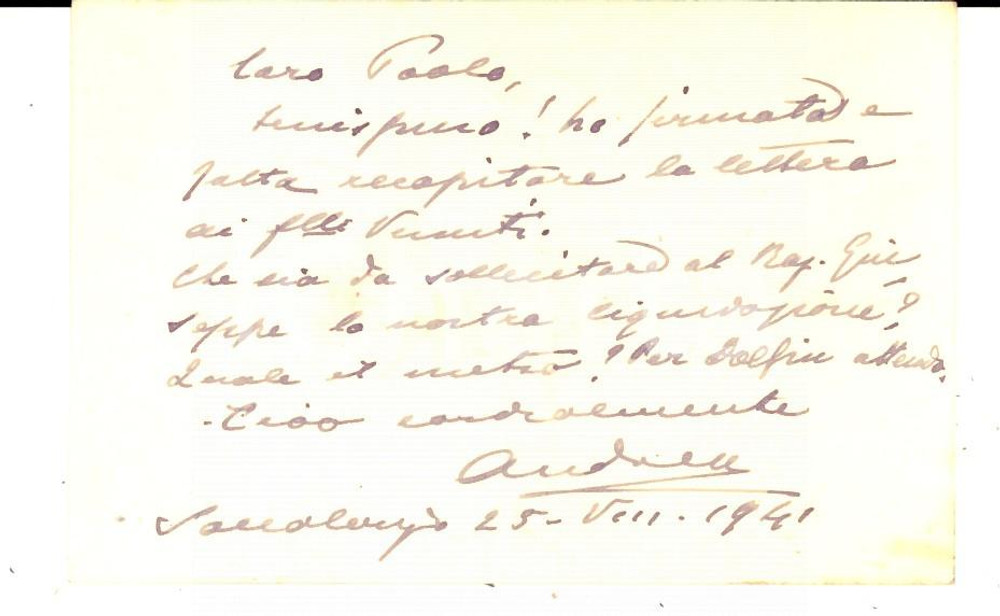 Caro Paolo,
ho firmato e
fatta recapitare la lettera
ai f.lli
Che sia da sollecitare al Rag. Giu
seppe la nostra liquidazione?
Quale il metro? Per Dolfin attendo.
- Ciao cordialmente
Andrea
25 - VIII - 1941